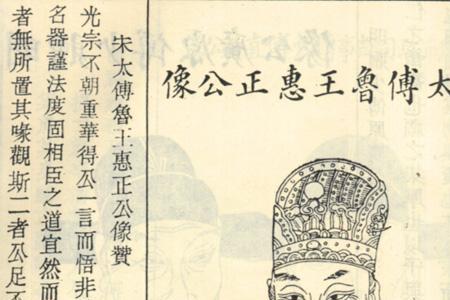 太傅魯王惠正公像
宋太傅魯王惠正公像贊
光宗不朝重華得公一言而悟非
名器謹法度固相臣之道宜然而
者無所置其喙觀斯二者公足不